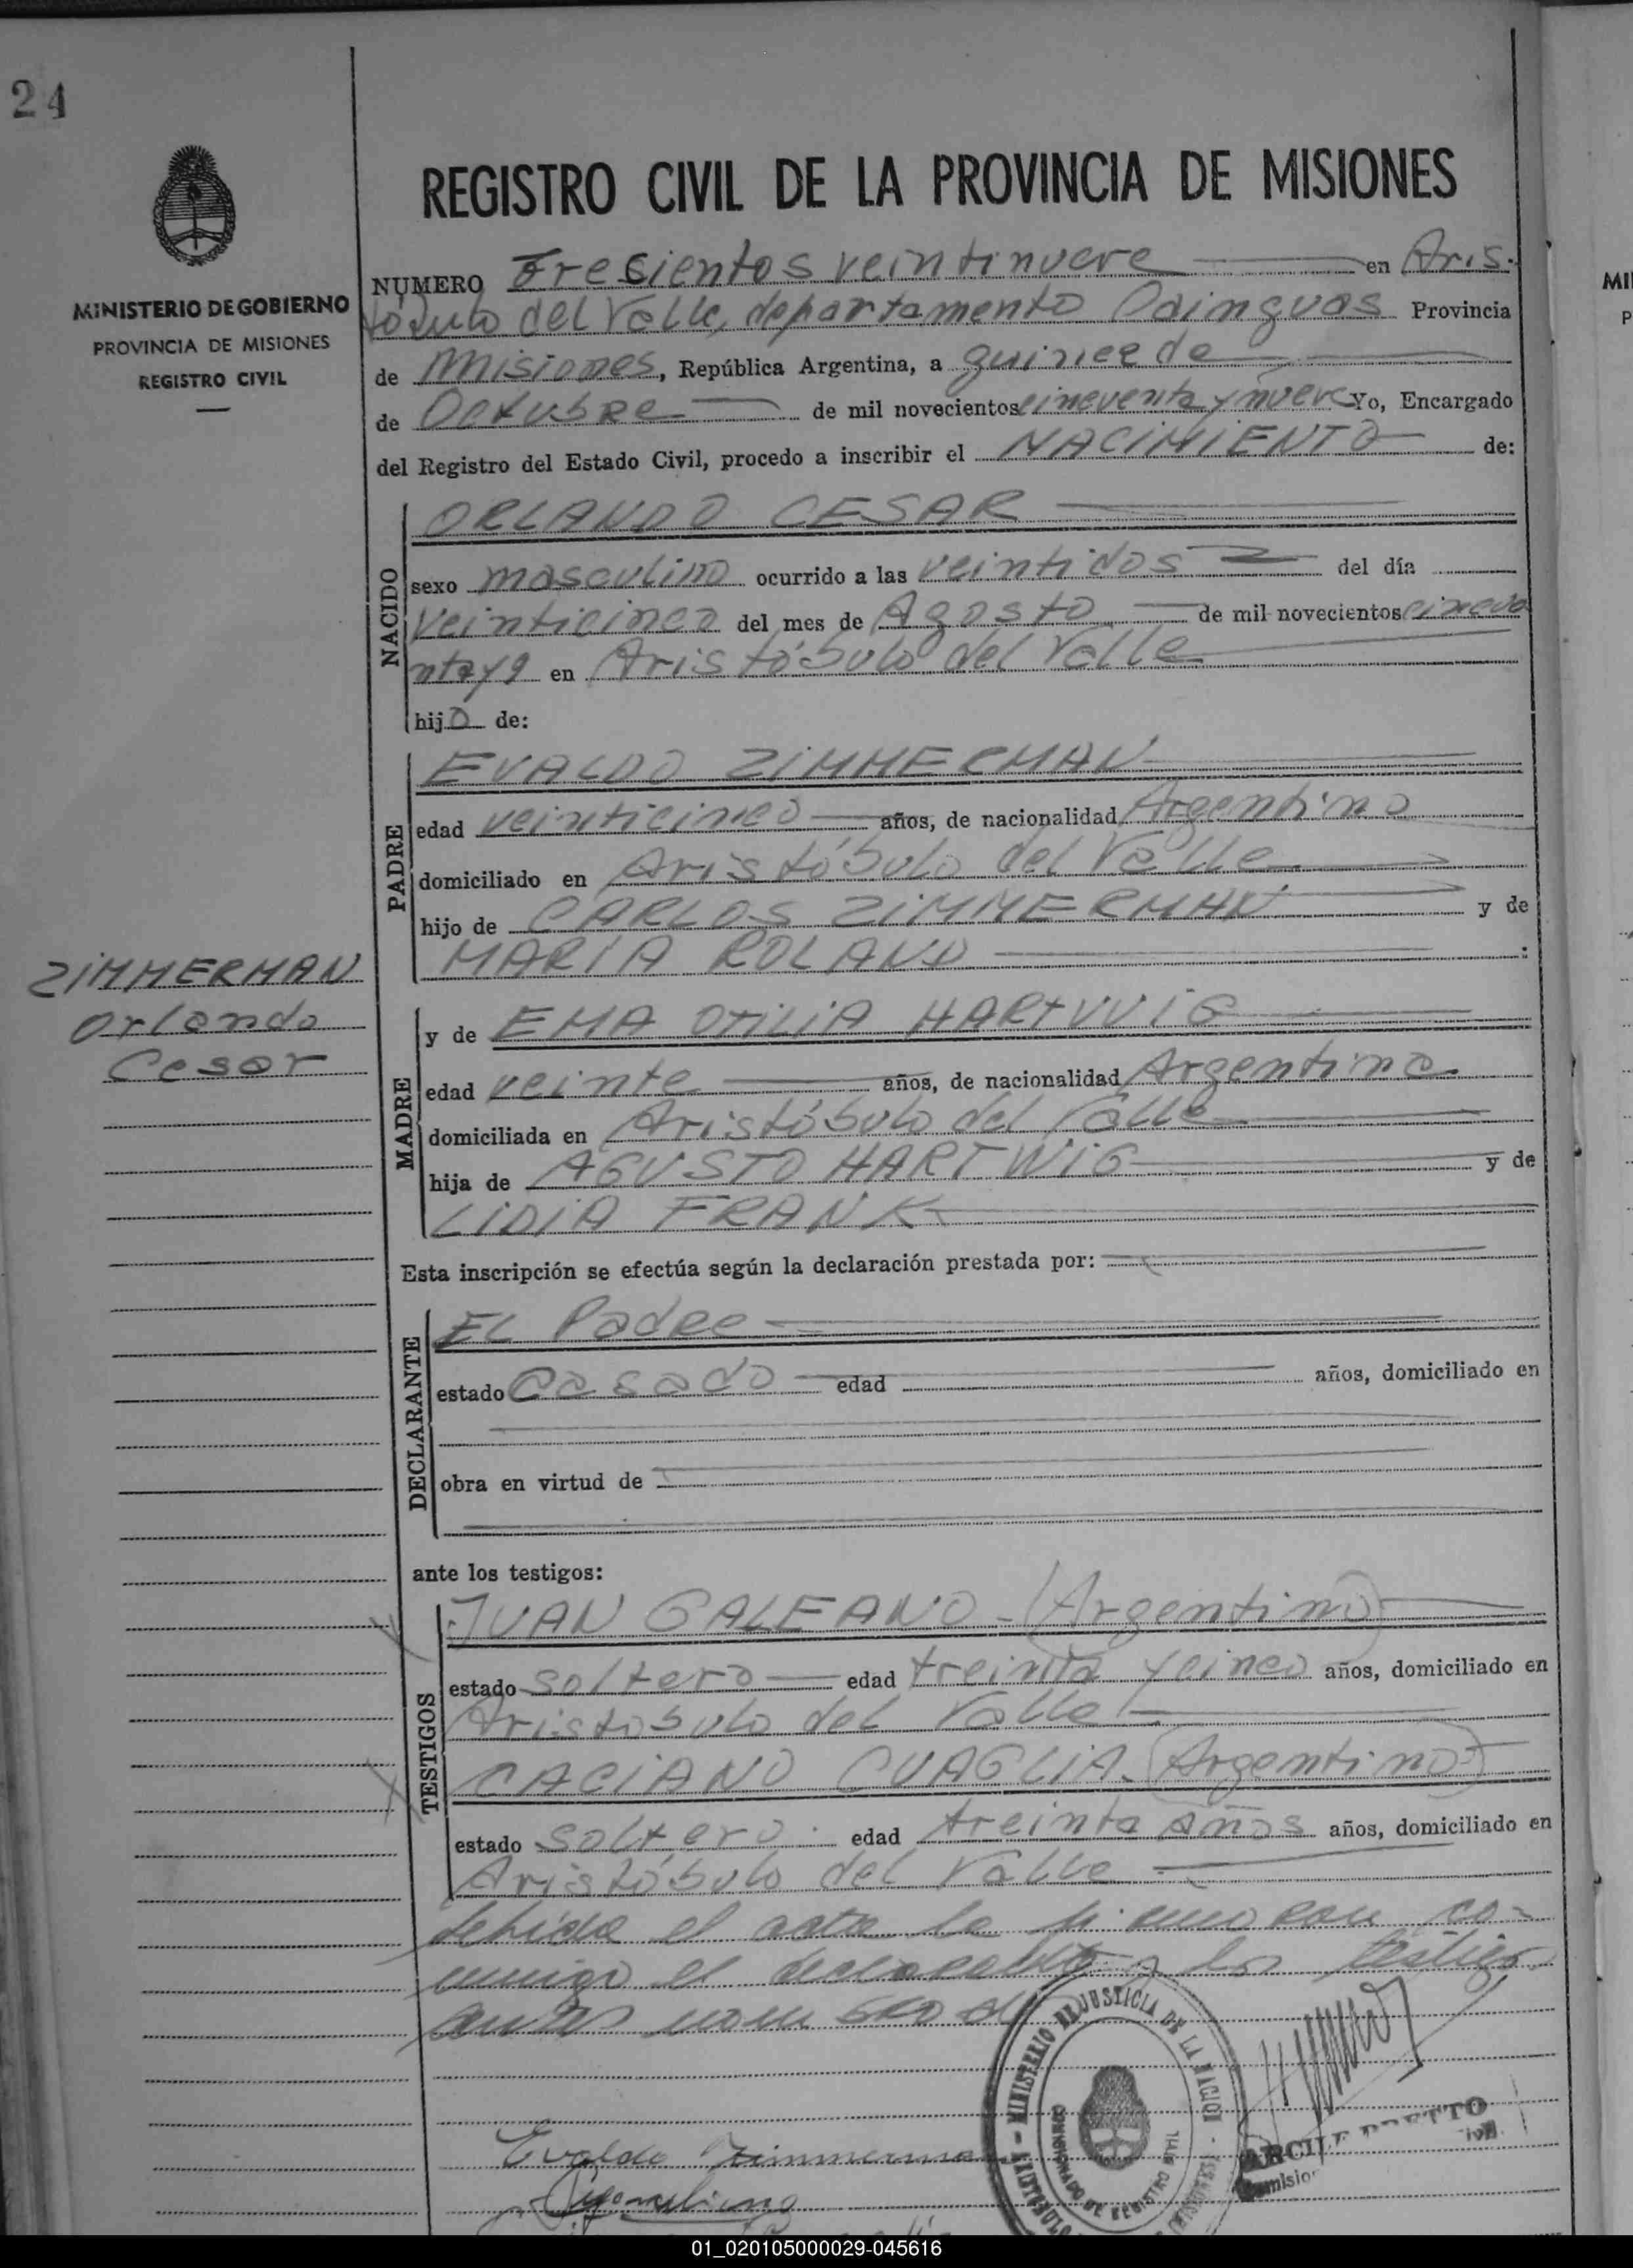 24
MINISTERIO DE GOBIERNO
PROVINCIA DE MISIONES
REGISTRO CIVIL
REGISTRO CIVIL DE LA PROVINCIA DE MISIONES
NUMERO Tresientos veintinueve en Aris-
tóbulo del Valle, departamento Cainguas Provincia
de Misiones, República Argentina, a quince de
de Octubre de mil novecientos cincuenta y nueve Yo, Encargado
del Registro del Estado Civil, procedo a inscribir el NACIMIENTO de:
NACIDO
ORLANDO CESAR
sexo masculino ocurrido a las veintidos del día
veinticinco del mes de Agosto de mil novecientos cincue
nta y 9 en Aristóbulo del Valle
hijo de:
PADRE
EVALDO ZIMMERMAN
edad veinticinco años, de nacionalidad Argentino
domiciliado en Aristóbulo del Valle
hijo de CARLOS ZIMMERMAN y de
MARIA ROLAND
ZIMMERMAN
Orlando
Cesar
MADRE
y de EMA OTILIA HARTWIG
edad veinte años, de nacionalidad Argentina
domiciliada en Aristóbulo del Valle
hija de AGUSTO HARTWIG y de
LIDIA FRANK
Esta inscripción se efectúa según la declaración prestada por:
DECLARANTE
EL Padre
estado Casado edad años, domiciliado en
obra en virtud de
ante los testigos:
TESTIGOS
JUAN GALEANO - (Argentino)
estado soltero edad treinta y cinco años, domiciliado en
Aristobulo del Valle
CACIANO CUAGLIA - (Argentino)
estado soltero edad treinta años años, domiciliado en
Aristóbulo del Valle
el acta la co-
nmigo el declarante y los testigos
antes
MINISTERIO DE JUSTICIA DE LA NACION
DE REGISTRO CIVIL
Evaldo Zimmerman
01_020105000029-045616